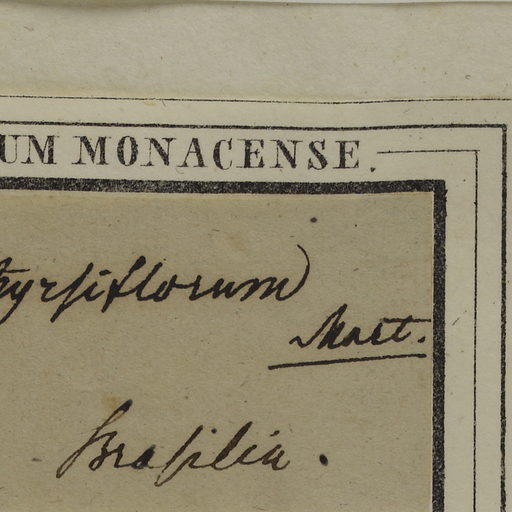 UM MONACENSE.
hyrsiflorum
Mart.
Brasilia.